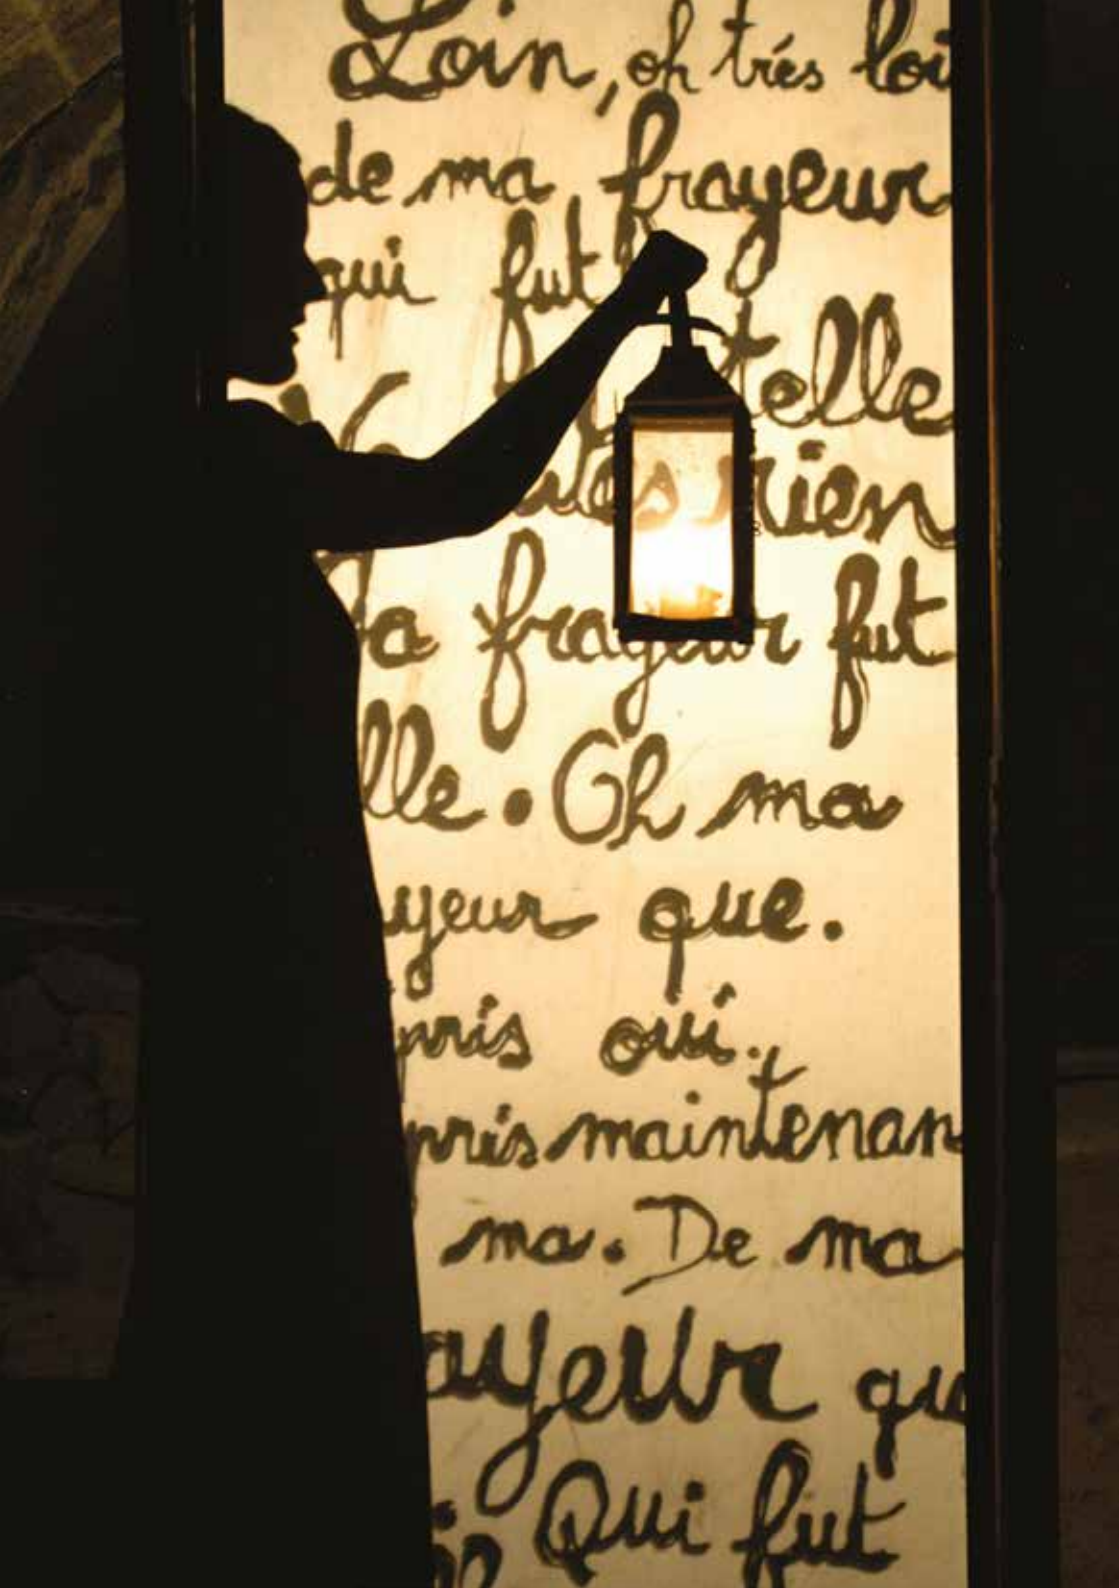 Loin, oh trés loi
de ma frayeur
qui fut
telle
rien
frayeur fut
lle. Oh ma
yeur que.
pris oui.
pris maintenan
ma. De ma
ayeur qu
Qui fut